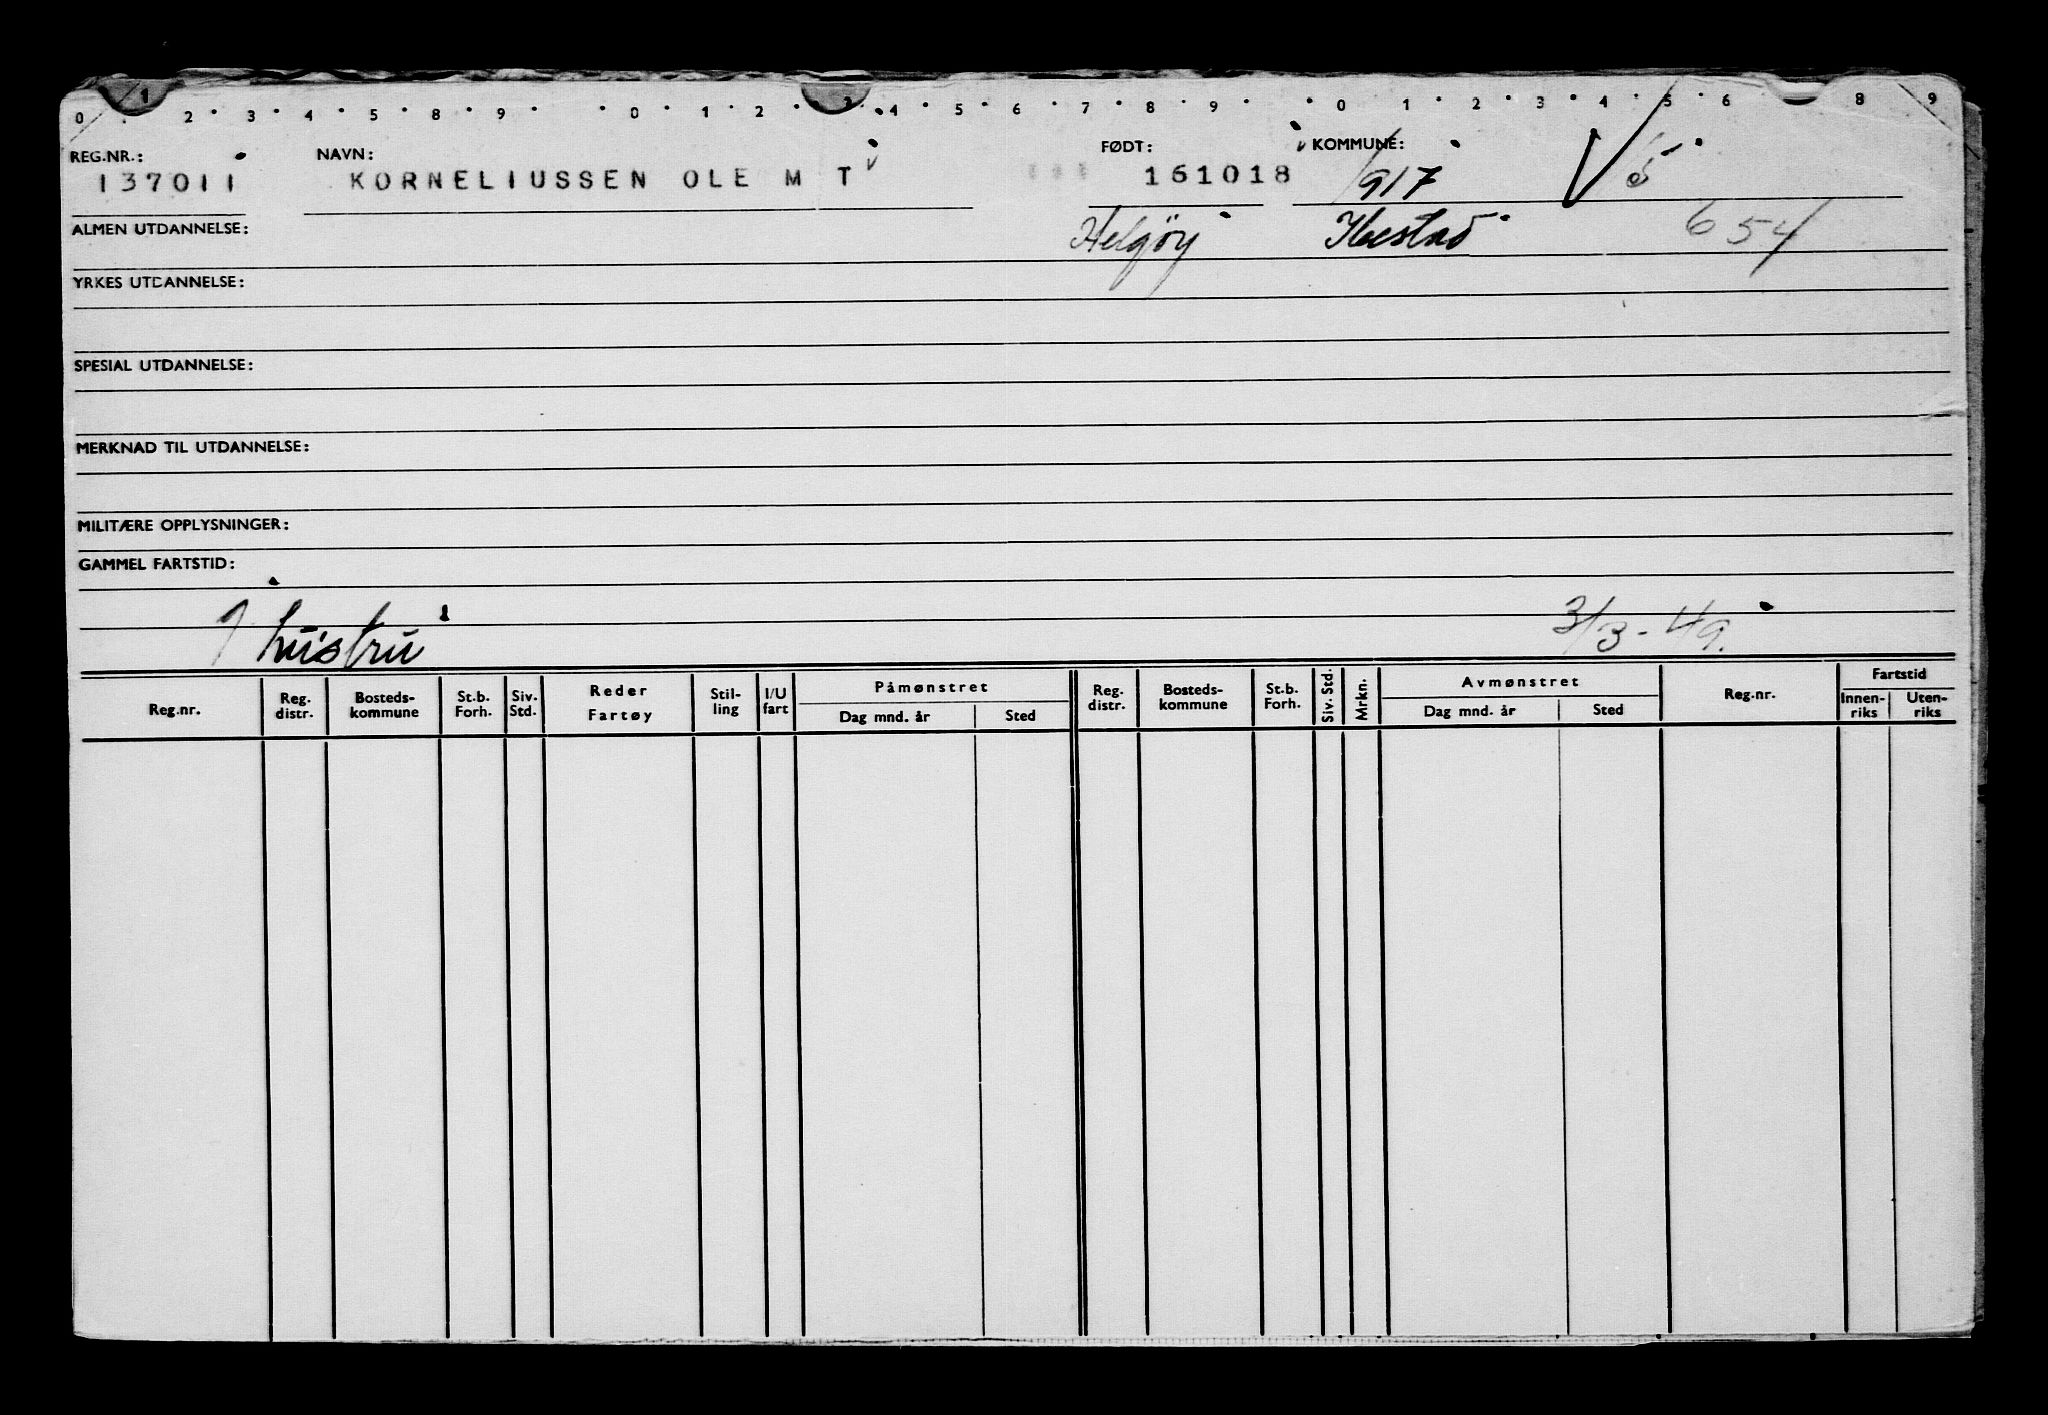 0 1 2 3 4 5 8 9 0 1 2 3 4 5 6 7 8 9 0 1 2 3 4 5 6 8 9
REG.NR.: NAVN: FØDT: KOMMUNE:
137011 KORNELIUSSEN OLE M T 161018 1917
ALMEN UTDANNELSE: Helgöy Ibestad 654
YRKES UTDANNELSE:
SPESIAL UTDANNELSE:
MERKNAD TIL UTDANNELSE:
MILITÆRE OPPLYSNINGER:
GAMMEL FARTSTID:
3/3-49.
Reg.nr. Reg. distr. Bosteds-kommune St.b. Forh. Siv. Std. Reder Fartøy Stil-ling I/U fart Påmønstret Dag mnd. år Sted Reg. distr. Bosteds-kommune St.b. Forh. Siv. Std. Mrkn. Avmønstret Dag mnd. år Sted Reg.nr. Fartstid Innen-riks Uten-riks